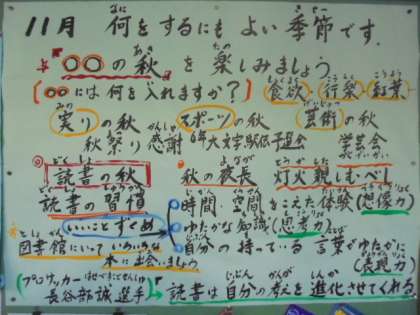 11月 何をするにもよい季節です。
"○○の秋"を楽しみましょう
(○○には何を入れますか?) 食欲 行楽 紅葉
実りの秋 スポーツの秋 芸術の秋
秋祭り感謝 6年大文字駅伝予選会 学芸会
読書の秋 秋の夜長 灯火親しむべし
読書の習慣 時間・空間をこえた体験(想像力)
いいことすぐめ ゆたかな知識(思考力)
図書館にいて いろいろな 自分の持っている言葉がゆたかに
本に出会いましょう (表現力)
(プロサッカー 長谷部誠選手) → 読書は自分の考を進化させてくれる